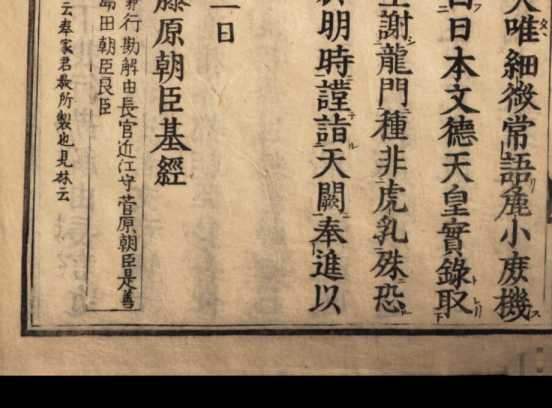 唯細微常語麁小庶機
曰日本文德天皇實錄取
謝龍門種非虎乳殊恐
明時謹詣天闕奉進以
日
藤原朝臣基經
行勘解由長官近江守菅原朝臣是善
島田朝臣良臣
云奉家君教所製也見林云